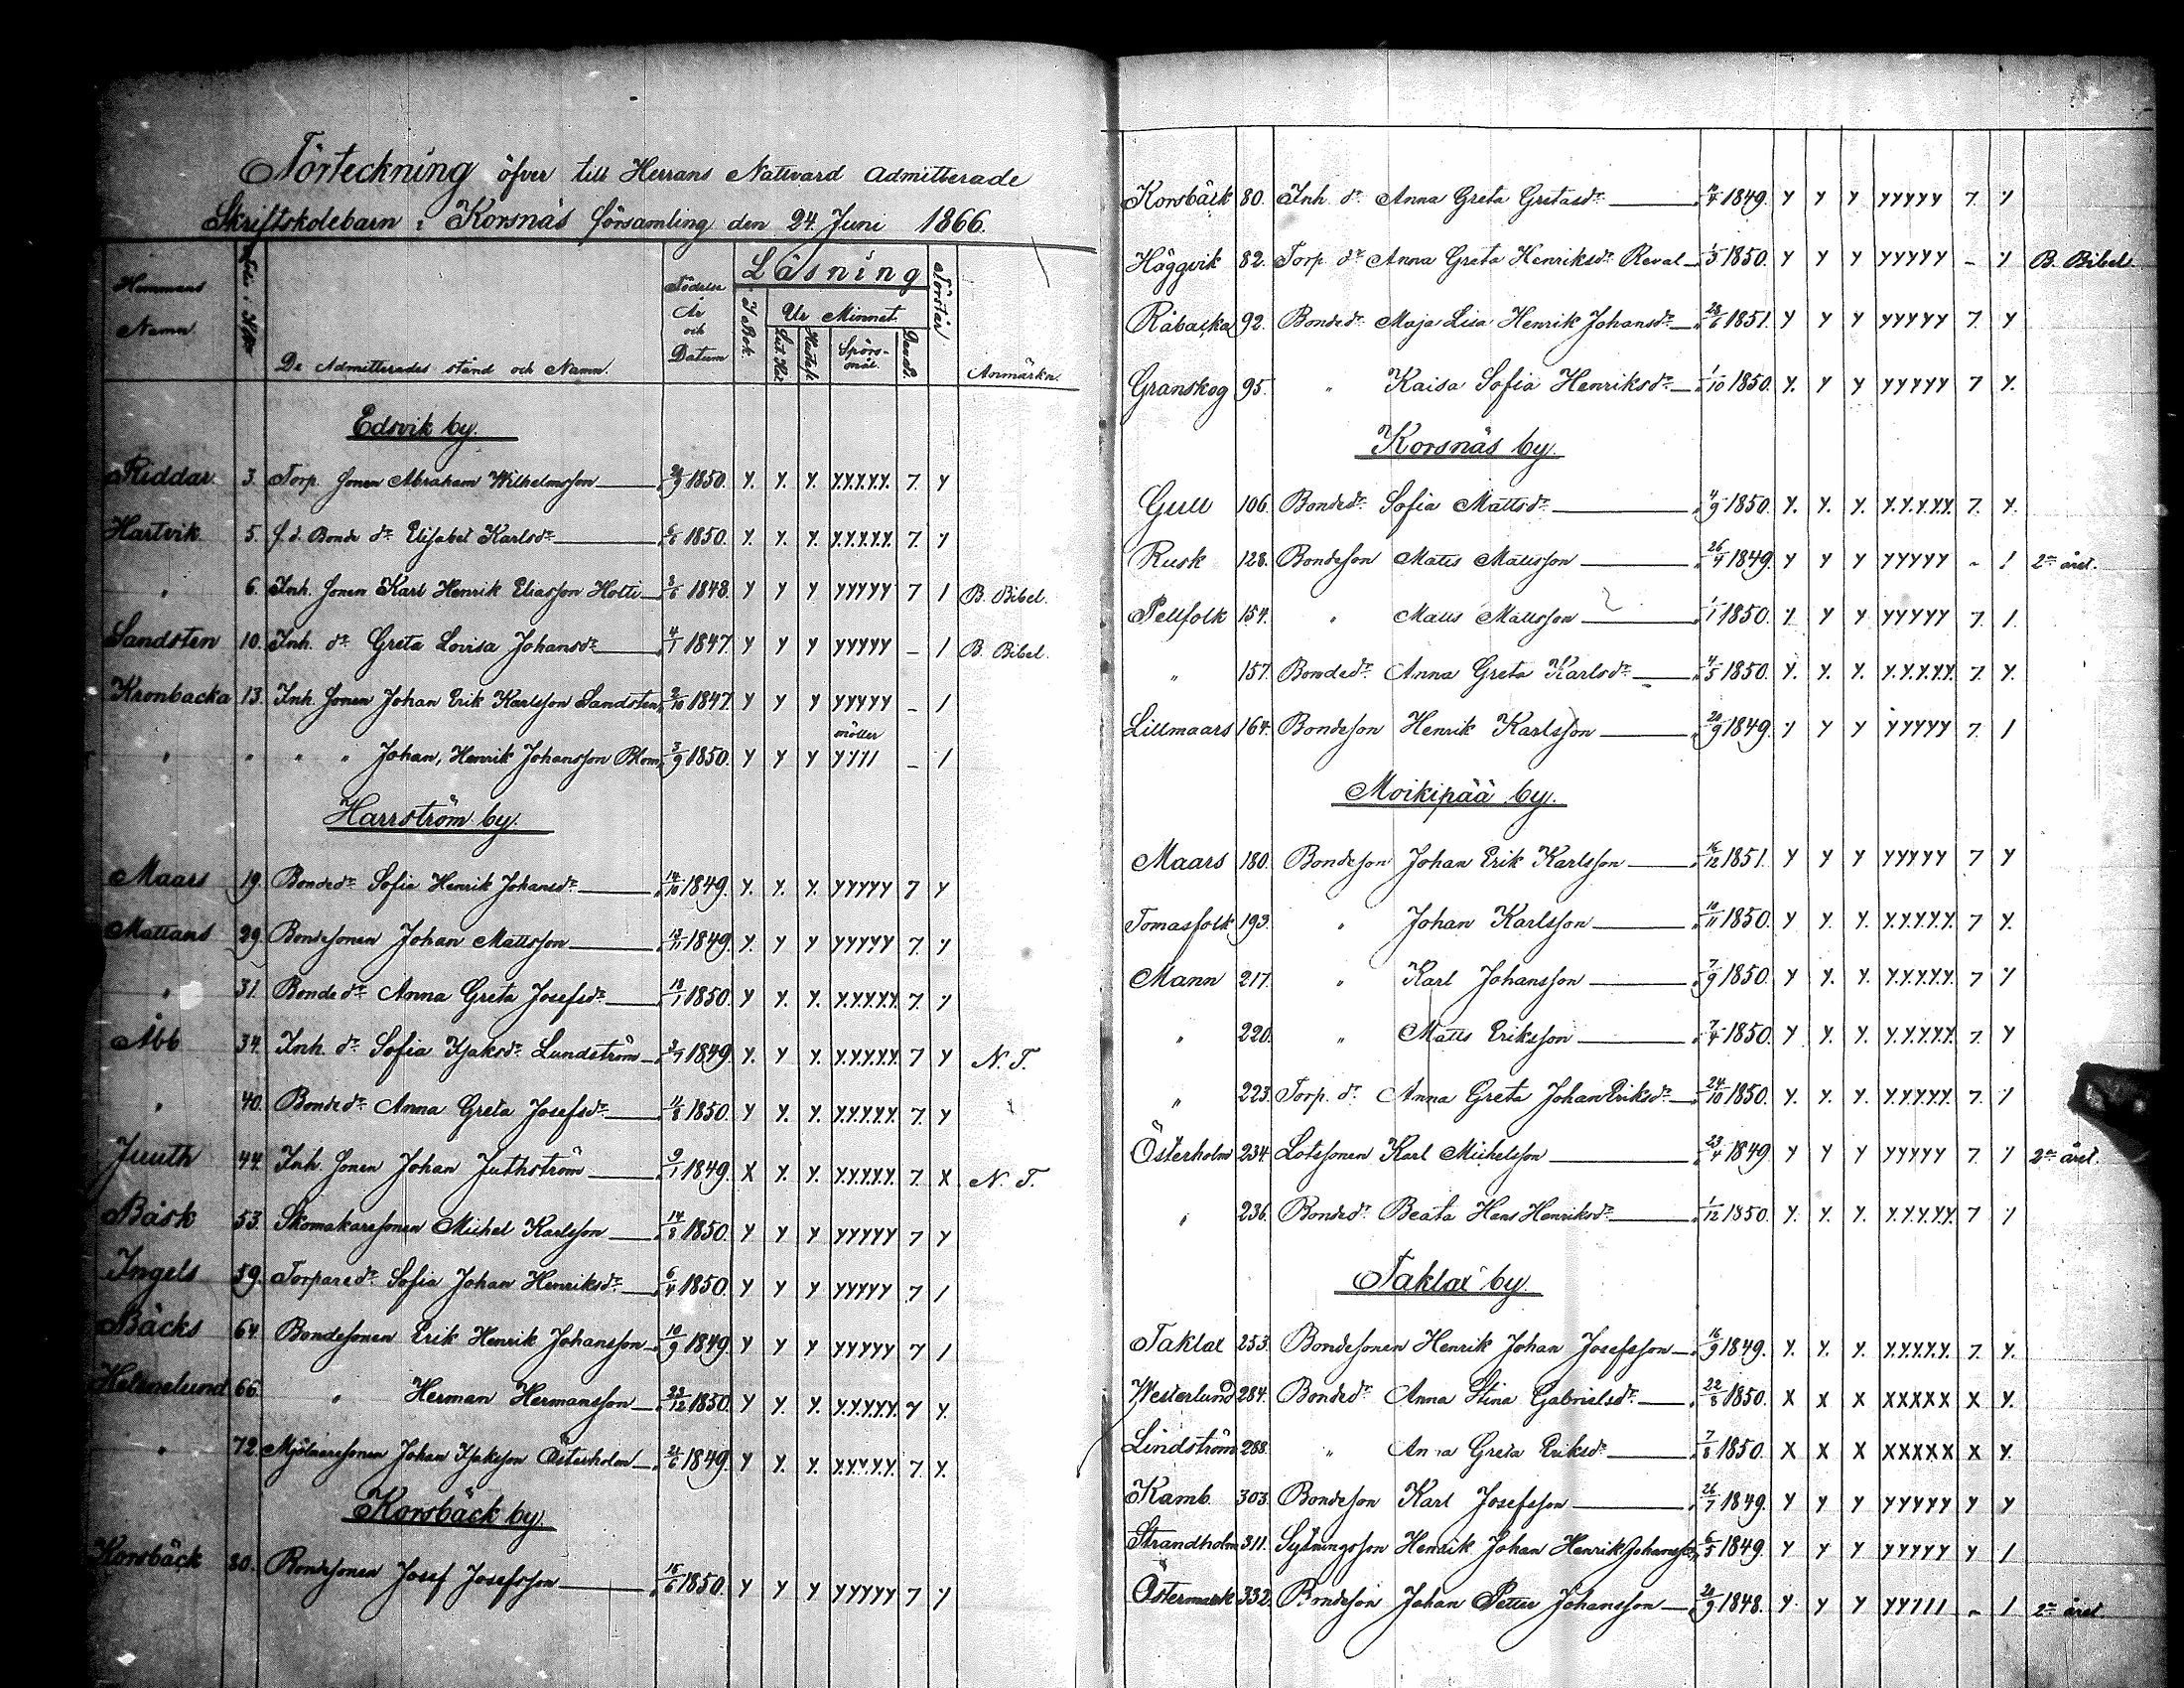 Förteckning öfver till Herrans Nattvard Admitterade
Skriftskolebarn i Korsnäs församling den 24 Juni 1866.
Hemmans Namn
De Admitterades stånd och Namn.
Födelse År och Datum
Läsning
I Bok.
Ur Minnet.
Spörsmål.
Förstår
Anmärkn.
Edsvik by.
Riddar 3. Torp. sonen Abraham Wilhelmsson 1850. Y. Y. Y. Y.Y.Y.Y.Y. 7. Y
Hartvik 5. f.d. Bonde dr Elisabet Karlsdr 1850. Y. Y. Y. Y.Y.Y.Y.Y. 7. Y
" 6. Inh. sonen Karl Henrik Eliasson Holti 1848. Y Y Y YYYYY 7 / B. Bibel.
Sandsten 10. Inh. dr Greta Lovisa Johansdr 4/1 1847. Y Y Y YYYYY – / B. Bibel.
Kronbacka 13. Inh. sonen Johan Erik Karlsson Sandsten 2/10 1847 Y Y Y YYYYY – /
" " " " Johan, Henrik Johansson Blom 3/9 1850. Y Y Y YY/// – /
Harrström by.
Maars 19. Bondedr Sofia Henrik Johansdr 14/10 1849. Y. Y. Y. YYYYY 7 Y
Mattans 29. Bondesonen Johan Mattsson 1849. Y. Y Y YYYYY 7. Y
" 31. Bonde dr Anna Greta Josefsdr 18/1 1850. Y Y. Y. Y.Y.Y.Y.Y. 7. Y
Abb 34. Inh. dr Sofia Isaksdr Lundström 1849. Y. Y. Y. Y.Y.Y.Y.Y. 7 Y N. T.
" 40. Bondedr Anna Greta Josefsdr 11/8 1850. Y Y. Y. Y.Y.Y.Y.Y. 7. Y
Juuth 44. Inh. sonen Johan Juthström 9/1 1849. X Y. Y. Y.Y.Y.Y.Y. 7. X N. T.
Bäsk 53. Skomakaresonen Michel Karlsson 14/8 1850. Y Y Y YYYYY 7 Y
Ingels 59. Torparedr Sofia Johan Henriksdr 6/4 1850. Y Y Y YYYYY 7 /
Bäcks 64. Bondesonen Erik Henrik Johansson 10/9 1849 Y Y Y YYYYY 7 /
Helenelund 66. " Herman Hermansson 23/12 1850. Y Y. Y. Y.Y.Y.Y.Y. Y Y.
" 72. Mjölnaresonen Johan Isaksson Österholm 1849. Y Y. Y. Y.Y.Y.Y.Y. 7. Y.
Korsbäck by.
Korsbäck 80. Bondesonen Josef Josefsson 15/6 1850. Y Y Y YYYYY 7 Y
Korsbäck 80. Inh. dr Anna Greta Gretasdr 1849. Y Y Y YYYYY 7. Y
Häggvik 82. Torp. dr Anna Greta Henriksdr Reval 1/3 1850. Y Y Y YYYYY – Y B. Bibel.
Råbacka 92. Bondedr Maja Lisa Henrik Johansdr 28/6 1851. Y Y Y YYYYY 7. Y
Granskog 95. " Kaisa Sofia Henriksdr 1/10 1850. Y. Y Y YYYYY 7 Y.
Korsnäs by.
Gull 106. Bondedr Sofia Mattsdr 4/9 1850. Y. Y. Y. Y.Y.Y.Y.Y. 7. Y.
Rusk 128. Bondeson Matts Mattsson 26/4 1849. Y Y Y YYYYY – / 2dra året.
Pellfolk 154. " Matts Mattsson 1/1 1850. Y Y Y YYYYY 7. /.
" 157. Bondedr Anna Greta Karlsdr 4/5 1850. Y. Y. Y. Y.Y.Y.Y.Y. 7. Y.
Lillmaars 164. Bondeson Henrik Karlsson 20/9 1849. Y Y Y YYYYY 7. /
Moikipää by.
Maars 180. Bondeson Johan Erik Karlsson 16/12 1851. Y Y Y YYYYY 7 Y
Tomasfolk 193. " Johan Karlsson 10/11 1850. Y Y. Y. Y.Y.Y.Y.Y. 7 Y.
Mann 217. " Karl Johansson 7/9 1850. Y Y. Y. Y.Y.Y.Y.Y. 7 Y
" 220. " Matts Eriksson 7/4 1850. Y Y. Y. Y.Y.Y.Y.Y. 7. Y
" 223. Torp. dr Anna Greta Johan Eriksdr 24/10 1850. Y. Y. Y. Y.Y.Y.Y.Y. 7. Y
Österholm 234 Lotssonen Karl Michelsson 23/4 1849 Y Y Y YYYYY 7. Y 2dra året.
" 236. Bondedr Beata Hans Henriksdr 1/12 1850. Y. Y. Y. Y.Y.Y.Y.Y. 7 Y
Taklax by.
Taklax 253. Bondesonen Henrik Johan Josefsson 16/9 1849. Y. Y. Y. Y.Y.Y.Y.Y. 7. Y.
Westerlund 284. Bondedr Anna Stina Gabrielsdr 22/8 1850. X X X XXXXX X Y.
Lindström 288. " Anna Greta Eriksdr 7/8 1850. X X X XXXXX X Y.
Kamb. 303. Bondeson Karl Josefsson 26/7 1849. Y Y Y YYYYY Y Y
Strandholm 311. Sytningsson Henrik Johan Henrik Johansson 6/5 1849. Y Y Y YYYYY Y /
Östermark 332. Bondeson Johan Petter Johansson 20/9 1848. Y. Y Y YY/// – / 2dra året.